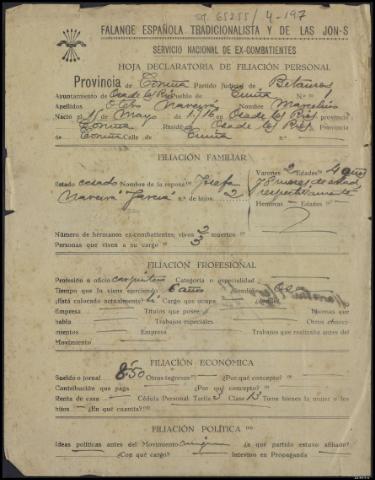 65255/4-197
FALANGE ESPAÑOLA TRADICIONALISTA Y DE LAS JON-S
SERVICIO NACIONAL DE EX-COMBATIENTES
HOJA DECLARATORIA DE FILIACIÓN PERSONAL
Provincia de Coruña Partido Judicial de Betanzos
Ayuntamiento de Oza de los Ríos Pueblo de Cuiña N.º 1
Apellidos Otero Naveira Nombre Marcelino
Nació el de Mayo de 1916 en Oza de los Ríos provincia
Coruña Residencia Oza de los Ríos provincia de
Coruña Calle de Cuiña
FILIACIÓN FAMILIAR
Varones 2 Edades 4 años
Estado casado Nombre de la esposa Josefa y 8 meses de edad
Naveira García n.º de hijos 2 respectivamente
Hembras Edades
Número de hermanos ex-combatientes, vivos 2 muertos
Personas que viven a su cargo 3
FILIACIÓN PROFESIONAL
Profesión u oficio carpintero Categoría o especialidad
Tiempo que la viene ejerciendo 6 años
¿Está colocado actualmente? Cargo que ocupa
Empresa Títulos que posee Idiomas que
habla Trabajos especiales Otros
Empresa Trabajos que realizaba antes del
Movimiento
FILIACIÓN ECONÓMICA
Sueldo o jornal 8'50 Otros ingresos ¿Por qué concepto?
Contribución que paga ¿Por qué concepto?
Renta de casa Cédula Personal Tarifa 3 Clase 13 Tiene bienes la mujer o los
hijos ¿En qué cuantía?
FILIACIÓN POLÍTICA
Ideas políticas antes del Movimiento ninguna ¿a qué partido estuvo afiliado?
¿Con qué cargo? Intervino en Propaganda